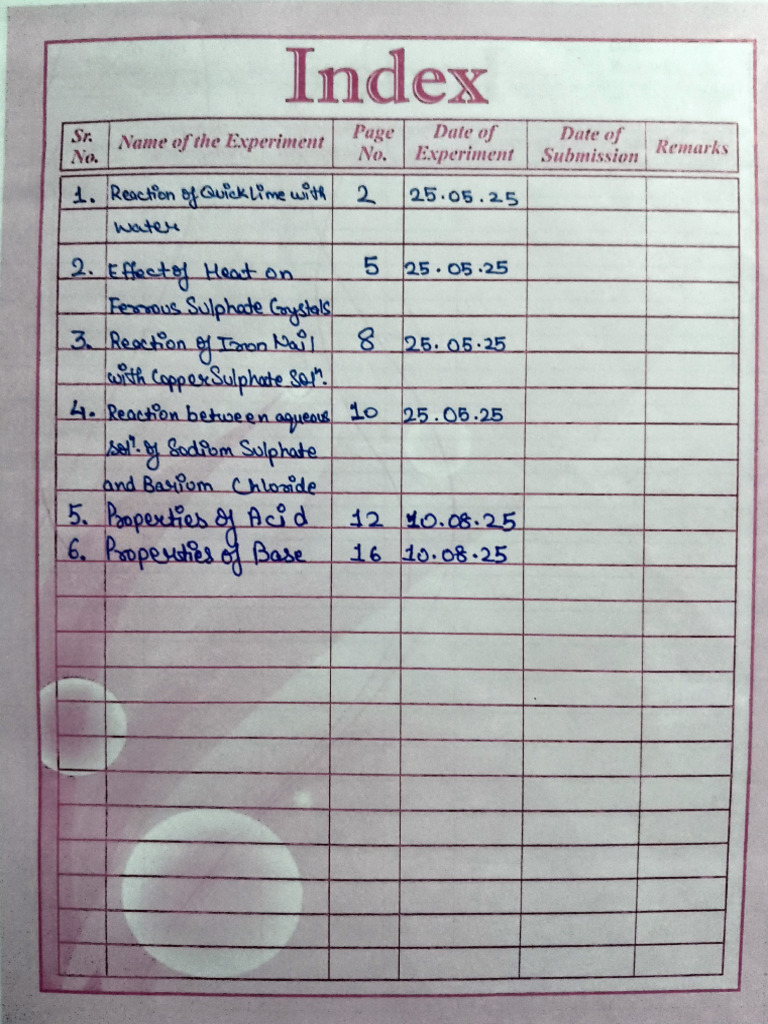 Index
Sr. No. Name of the Experiment Page No. Date of Experiment Date of Submission Remarks
1. Reaction of Quick Lime with 2 25.05.25
water
2. Effect of Heat on 5 25.05.25
Ferrous Sulphate Crystals
3. Reaction of Iron Nail 8 25.05.25
with Copper Sulphate Solⁿ.
4. Reaction between aqueous 10 25.05.25
solⁿ. of Sodium Sulphate
and Barium Chloride
5. Properties of Acid 12 10.08.25
6. Properties of Base 16 10.08.25